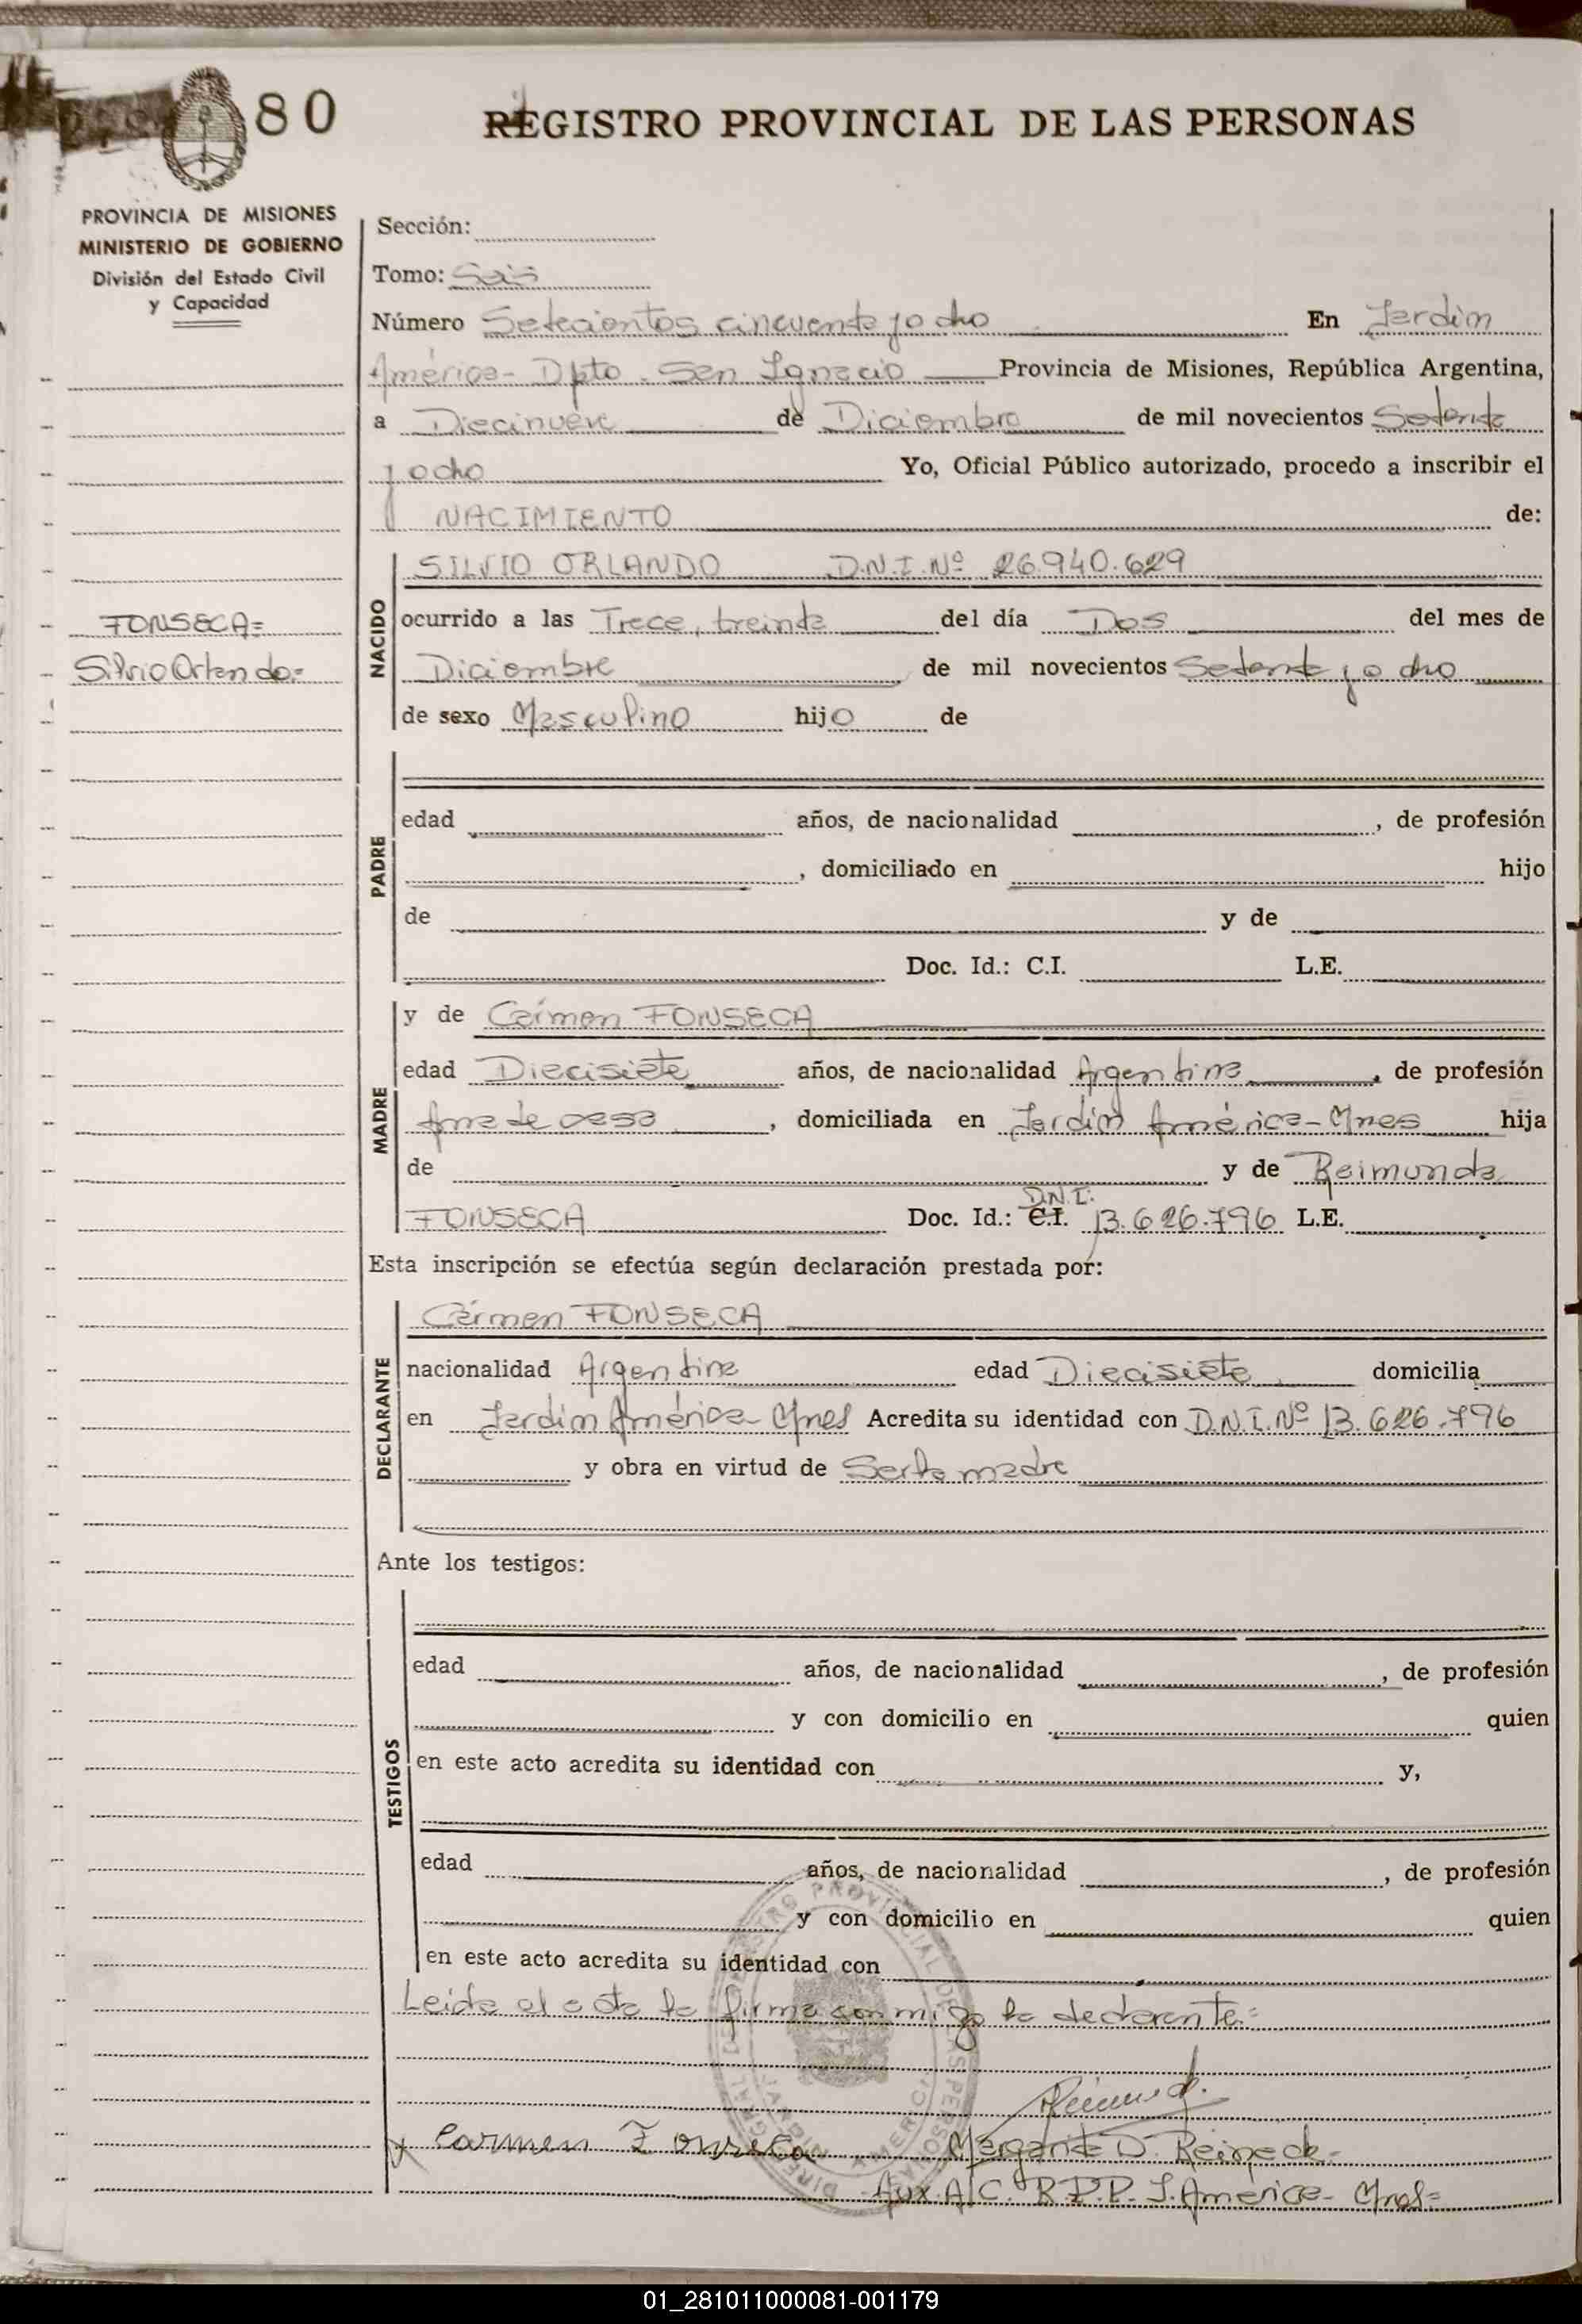 80
REGISTRO PROVINCIAL DE LAS PERSONAS
PROVINCIA DE MISIONES
MINISTERIO DE GOBIERNO
División del Estado Civil
y Capacidad
FONSECA=
Silvio Orlando=
Sección:
Tomo: Seis
Número Setecientos cincuenta y ocho En Jardim
América- Dpto. San Ignacio Provincia de Misiones, República Argentina,
a Diecinueve de Diciembre de mil novecientos Setenta
y ocho Yo, Oficial Público autorizado, procedo a inscribir el
NACIMIENTO de:
NACIDO
SILVIO ORLANDO D.N.I. Nº 26.940.629
ocurrido a las Trece, treinta del día Dos del mes de
Diciembre de mil novecientos Setenta y ocho
de sexo Masculino hijo de
PADRE
edad años, de nacionalidad , de profesión
, domiciliado en hijo
de y de
Doc. Id.: C.I. L.E.
MADRE
y de Carmen FONSECA
edad Diecisiete años, de nacionalidad Argentina, de profesión
Ama de casa, domiciliada en Jardím América-Mnes hija
de y de Raimunda
FONSECA Doc. Id.: C.I. D.N.I. 13.626.796 L.E.
Esta inscripción se efectúa según declaración prestada por:
DECLARANTE
Carmen FONSECA
nacionalidad Argentina edad Diecisiete domicilia
en Jardim América-Mnes Acredita su identidad con D.N.I. Nº 13.626.796
y obra en virtud de Ser la madre
Ante los testigos:
TESTIGOS
edad años, de nacionalidad , de profesión
y con domicilio en quien
en este acto acredita su identidad con y,
edad años, de nacionalidad , de profesión
y con domicilio en quien
en este acto acredita su identidad con
Leida el acta la firma conmigo la declarante=
Carmen Fonseca
Margarita D.
Aux. A/C. R.P.P. J. América- Mnes=
01_281011000081-001179